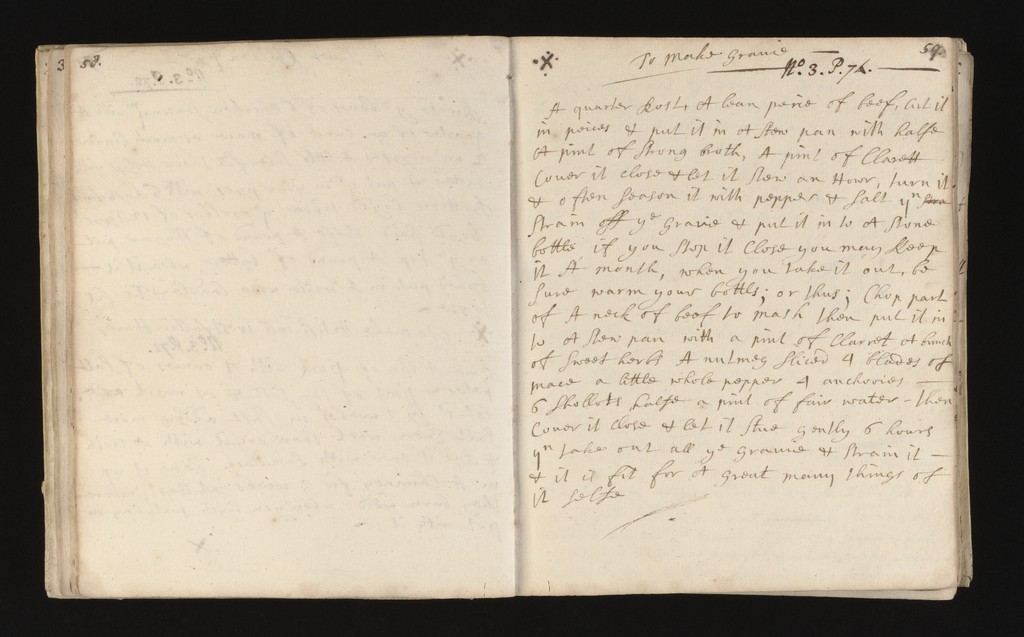 3 58.
To Make Gravie
59.
No. 3. P. 74.
A quarter Rost, A lean peice of beef, Cut it
in peices & put it in A Stew pan with halfe
A pint of Strong broth, A pint of Clarett
Cover it Close & let it Stew an Howr, turn it
& often Season it with pepper & Salt yn
Strain off ye Gravie & put it in to A Stone
bottle if you Stop it Close you may Keep
it A month, when you take it out, be
Sure warm your bottls; or thus; Chop part
of A neck of beef to mash then put it in
to A Stew pan with a pint of Clarret A bunch
of Sweet herbs A nutmeg Sliced 4 blades of
mace a little whole pepper 4 anchovies
6 Shollots halfe a pint of fair water - then
Cover it Close & let it Stue gently 6 hours
yn take out all ye Gravie & Strain it
& it is fit for A great many things of
it Selfe